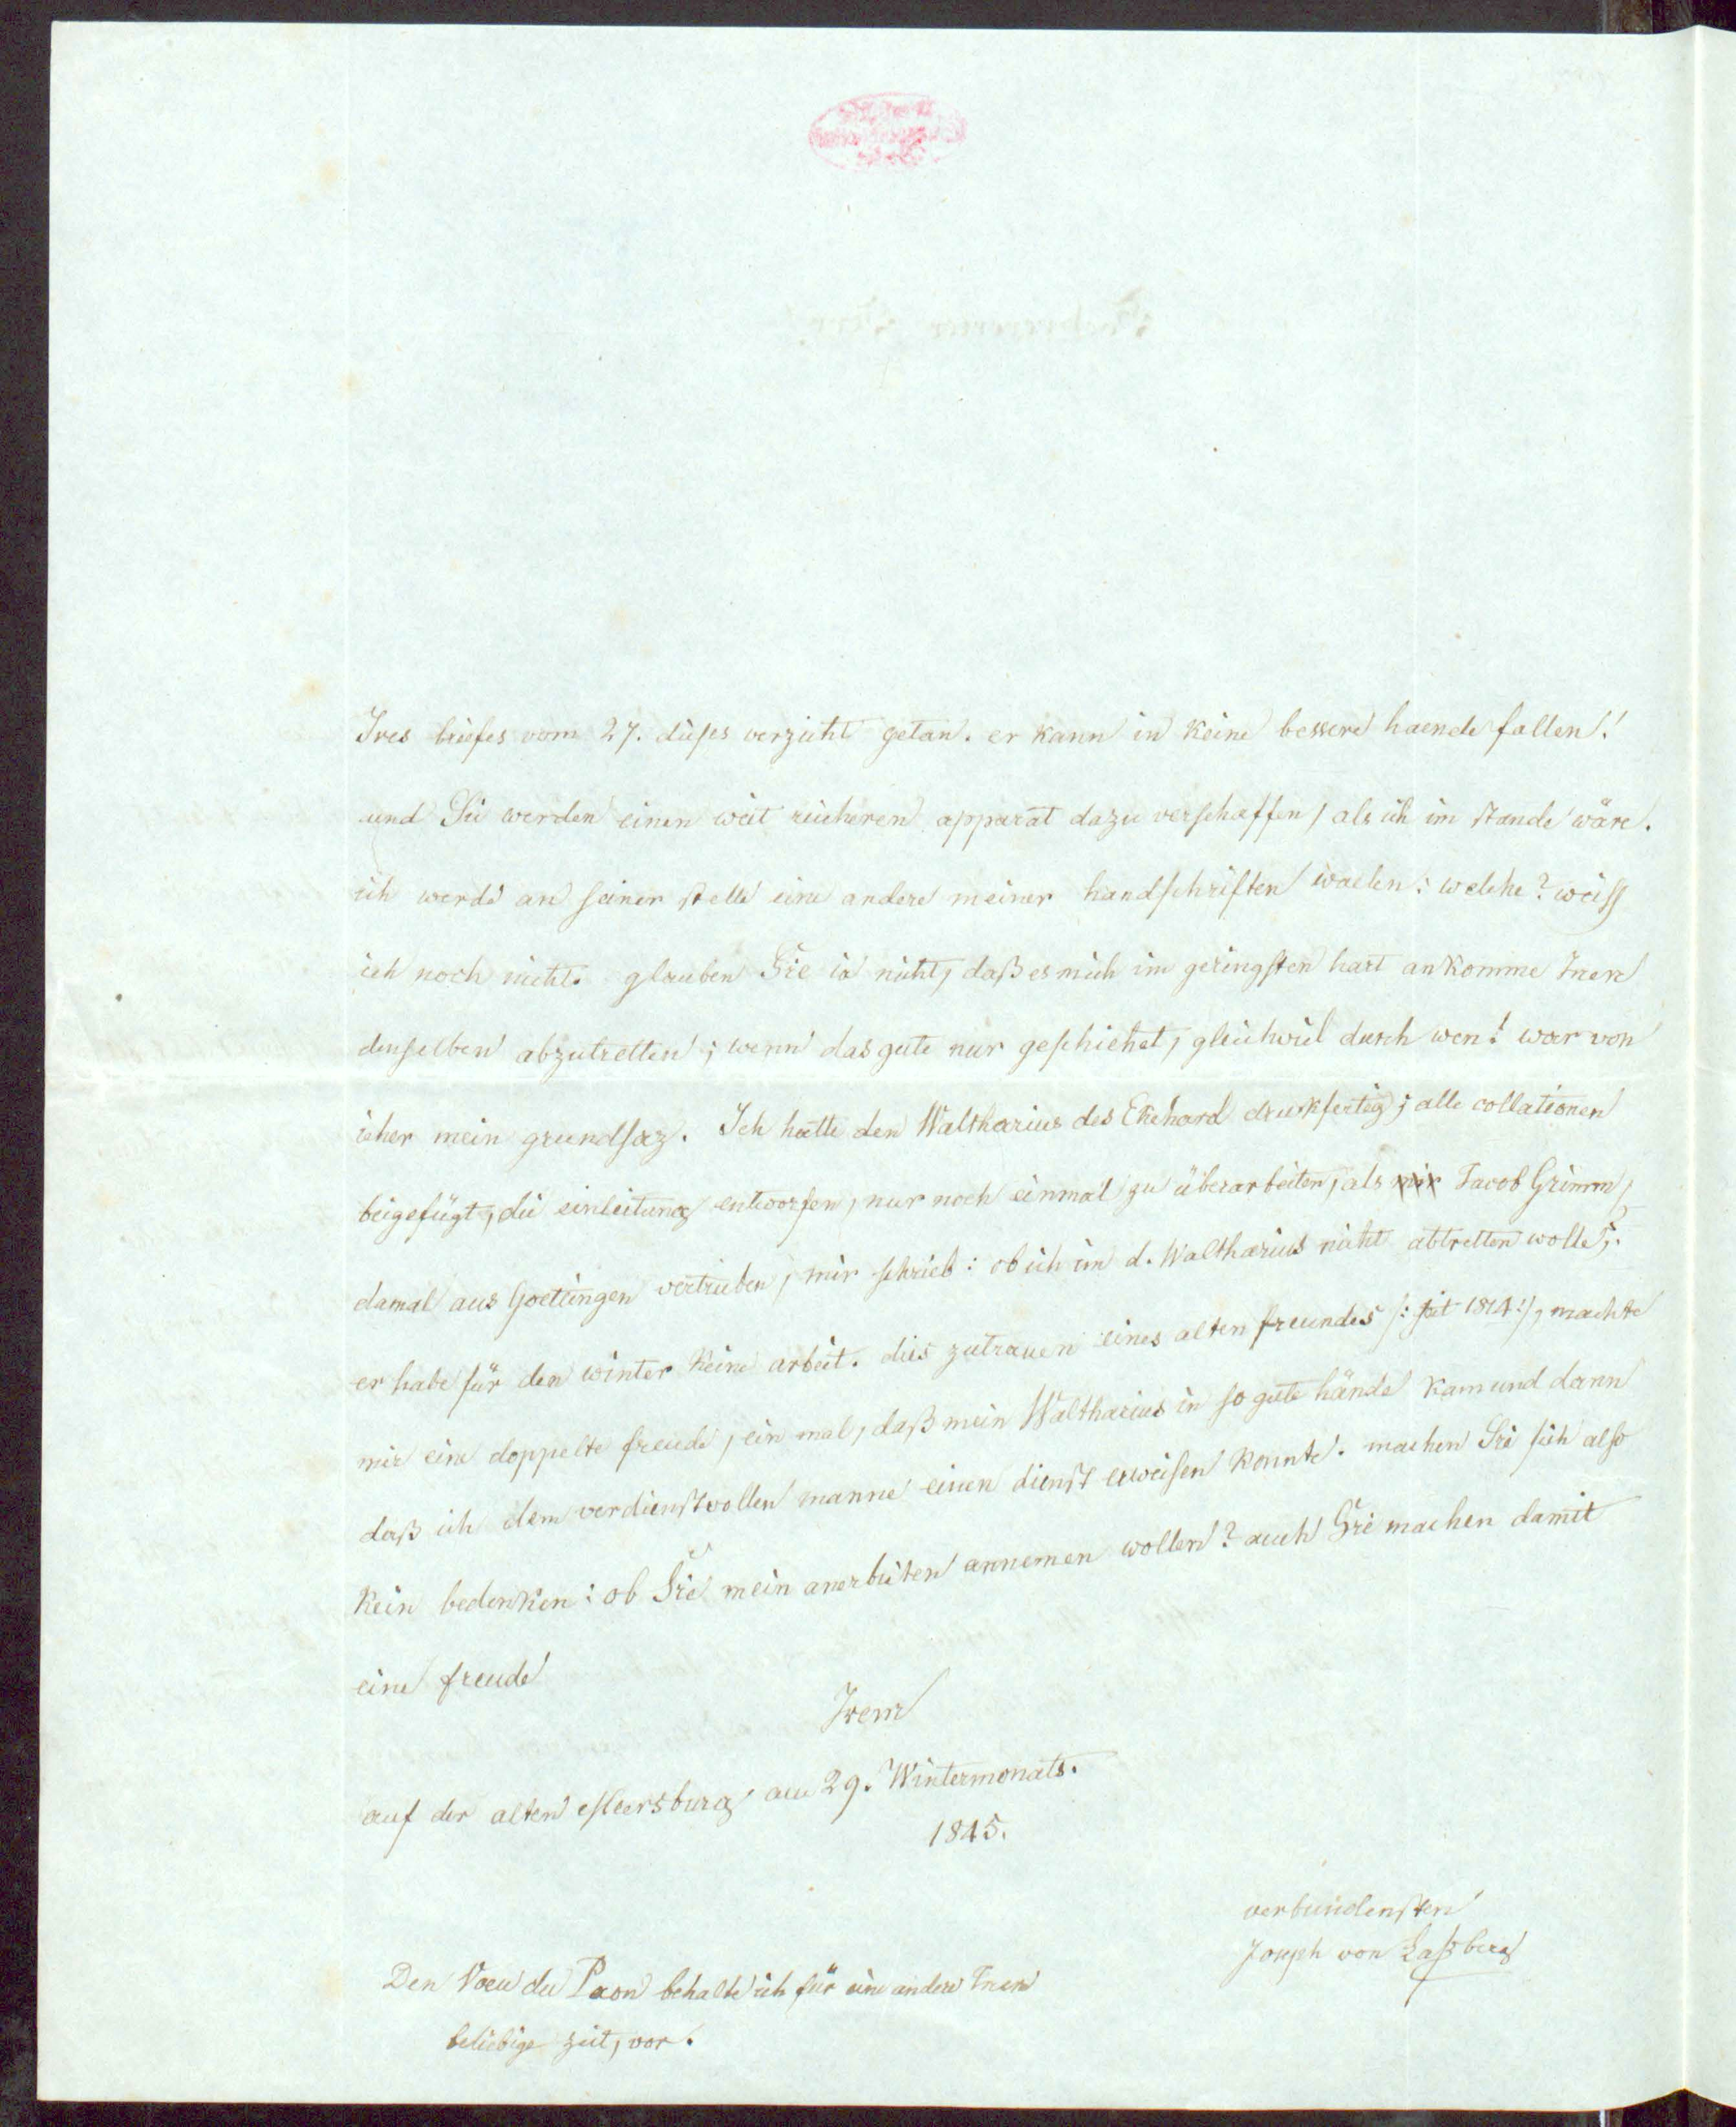 Ires briefes vom 27. dises verzicht getan. er kann in keine bessere haende fallen!
und Sie werden einen weit reicheren apparat dazu verschaffen, als ich im stande wäre.
ich werde an seiner stelle eine andere meiner handschriften waelen: welche? weiss
ich noch nicht. glauben Sie ia nicht, daß es mich im geringsten hart ankomme Inen
denselben abzutretten; wenn das gute nur geschiehet, gleichviel durch wen! war von
ieher mein grundsaz. Ich hatte den Waltharius des Ekehard drukfertig; alle collationen
beigefügt, die einleitung entworfen, nur noch einmal zu überarbeiten, als mir Jacob Grimm,
damal aus Goettingen vertrieben, mir schrieb: ob ich im d. Waltharius nicht abtretten wolle?
er habe für den winter keine arbeit. dies zutrauen eines alten freundes /: seit 1814 :/, machte
mir eine doppelte freude, ein mal, daß mein Waltharius in so gute hände kam und dann
daß ich dem verdienstvollen manne einen dienst erweisen konnte. machen Sie sich also
kein bedenken: ob Sie mein anerbieten annemen wollen? auch Sie machen damit
eine freude
Irem
auf der alten Meersburg am 29. Wintermonats.
1845.
verbundensten
Joseph von Laßberg
Den Voeu du Paon behalte ich für eine andere Inen
beliebige zeit, vor.